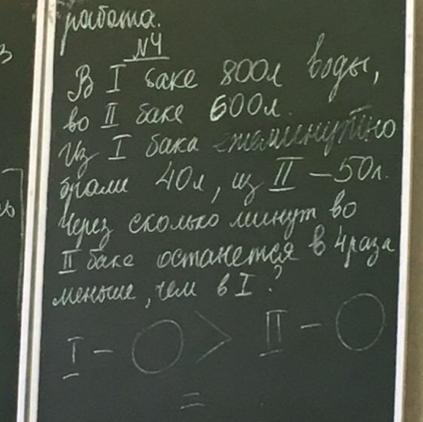 работа.
№4
В I баке 800л воды,
во II баке 600л.
Из I бака ежеминутно
брали 40л, из II – 50л.
Через сколько минут во
II баке останется в 4 раза
меньше, чем в I ?
I – ◯ > II – ◯
=